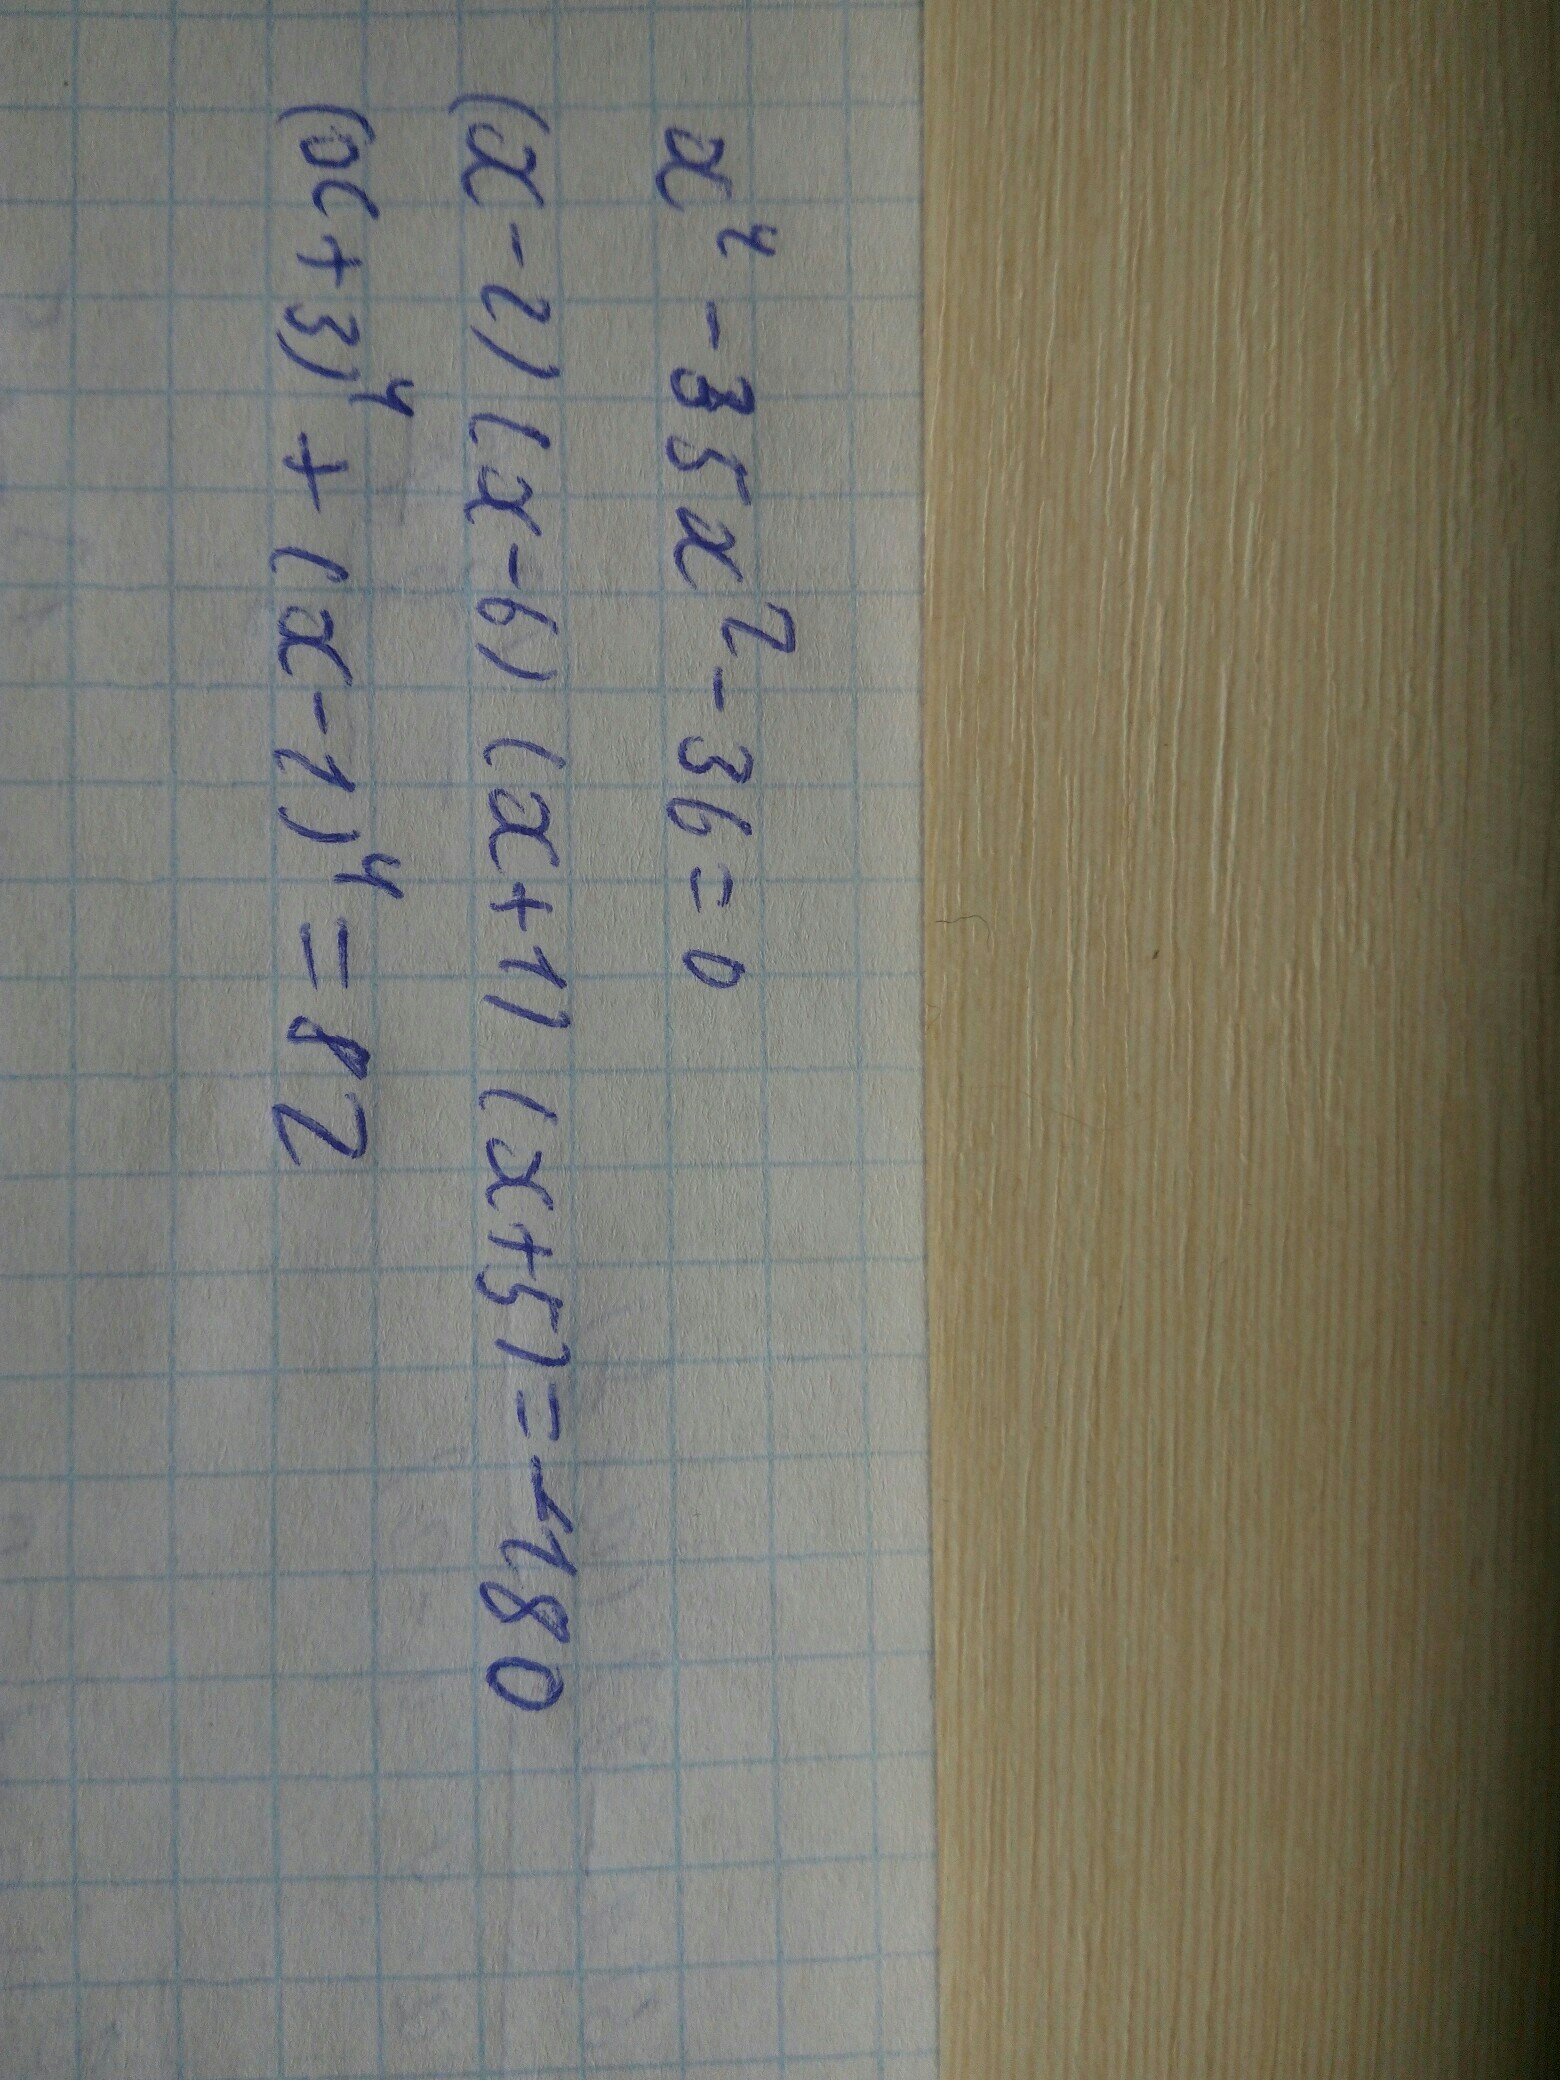 x⁴ - 35x² - 36 = 0
(x-2)(x-6)(x+1)(x+5) = -180
(x+3)⁴ + (x-1)⁴ = 82